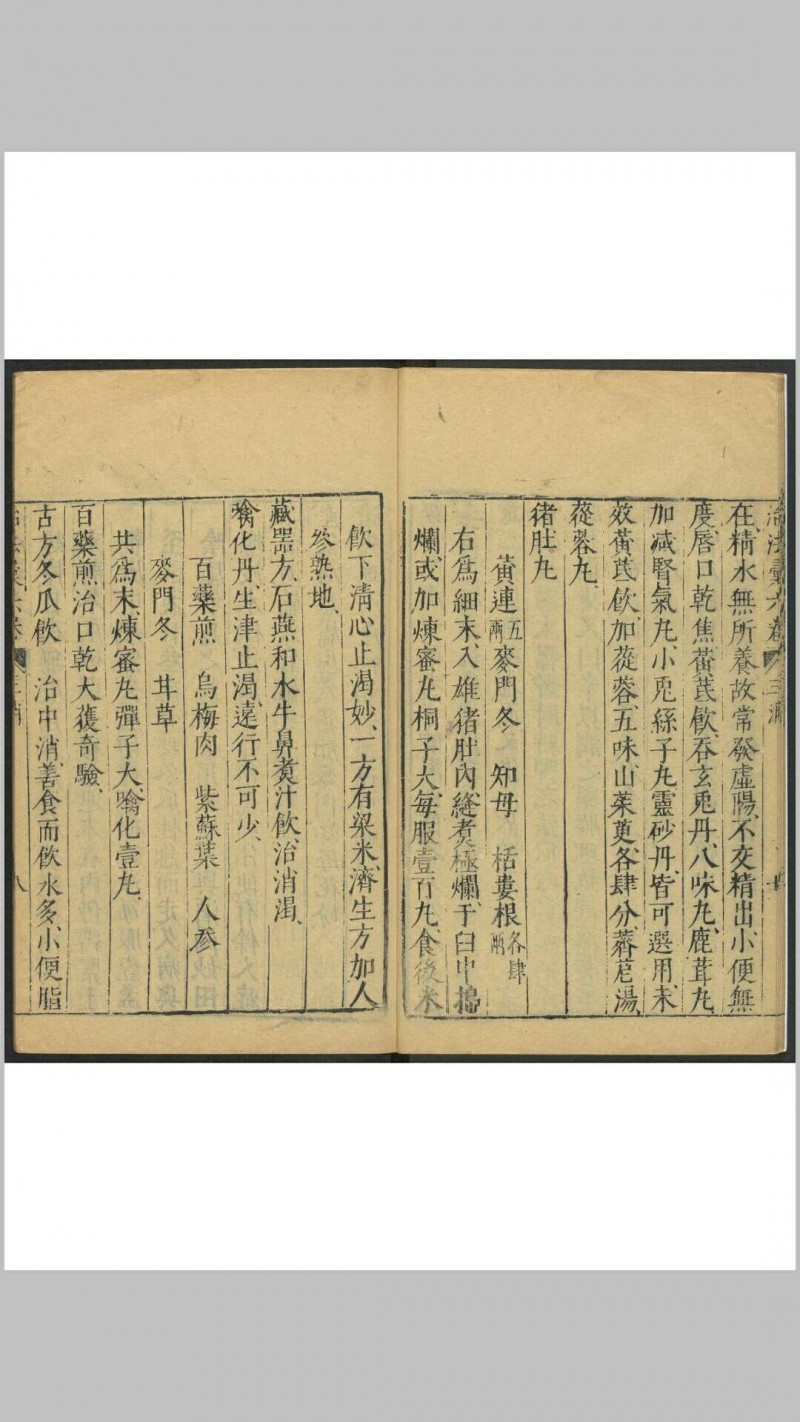 治法彙六卷 三消
在精水無所養故常發虛陽不交精出小便無
度唇口乾焦黃芪飲吞玄兎丹八味丸鹿茸丸
加减腎氣丸小兎絲子丸靈砂丹皆可選用未
效黃芪飲加蓯蓉五味山茱萸各肆分薺苨湯
蓯蓉丸
猪肚丸
黃連五兩 麥門冬 知母 栝蔞根各肆兩
右爲細末入雄猪肚內縫煮極爛于臼中搗
爛或加煉蜜丸桐子大每服壹百丸食後米
飲下淸心止渴妙一方有粱米濟生方加人
參熟地
藏噐方石燕和水牛鼻煑汁飲治消渴
噙化丹生津止渴遠行不可少
百藥煎 烏梅肉 紫蘇葉 人參
麥門冬 甘草
共爲末煉蜜丸彈子大噙化壹丸
百藥煎治口乾大獲奇驗
古方冬瓜飲 治中消善食而飲水多小便脂
八